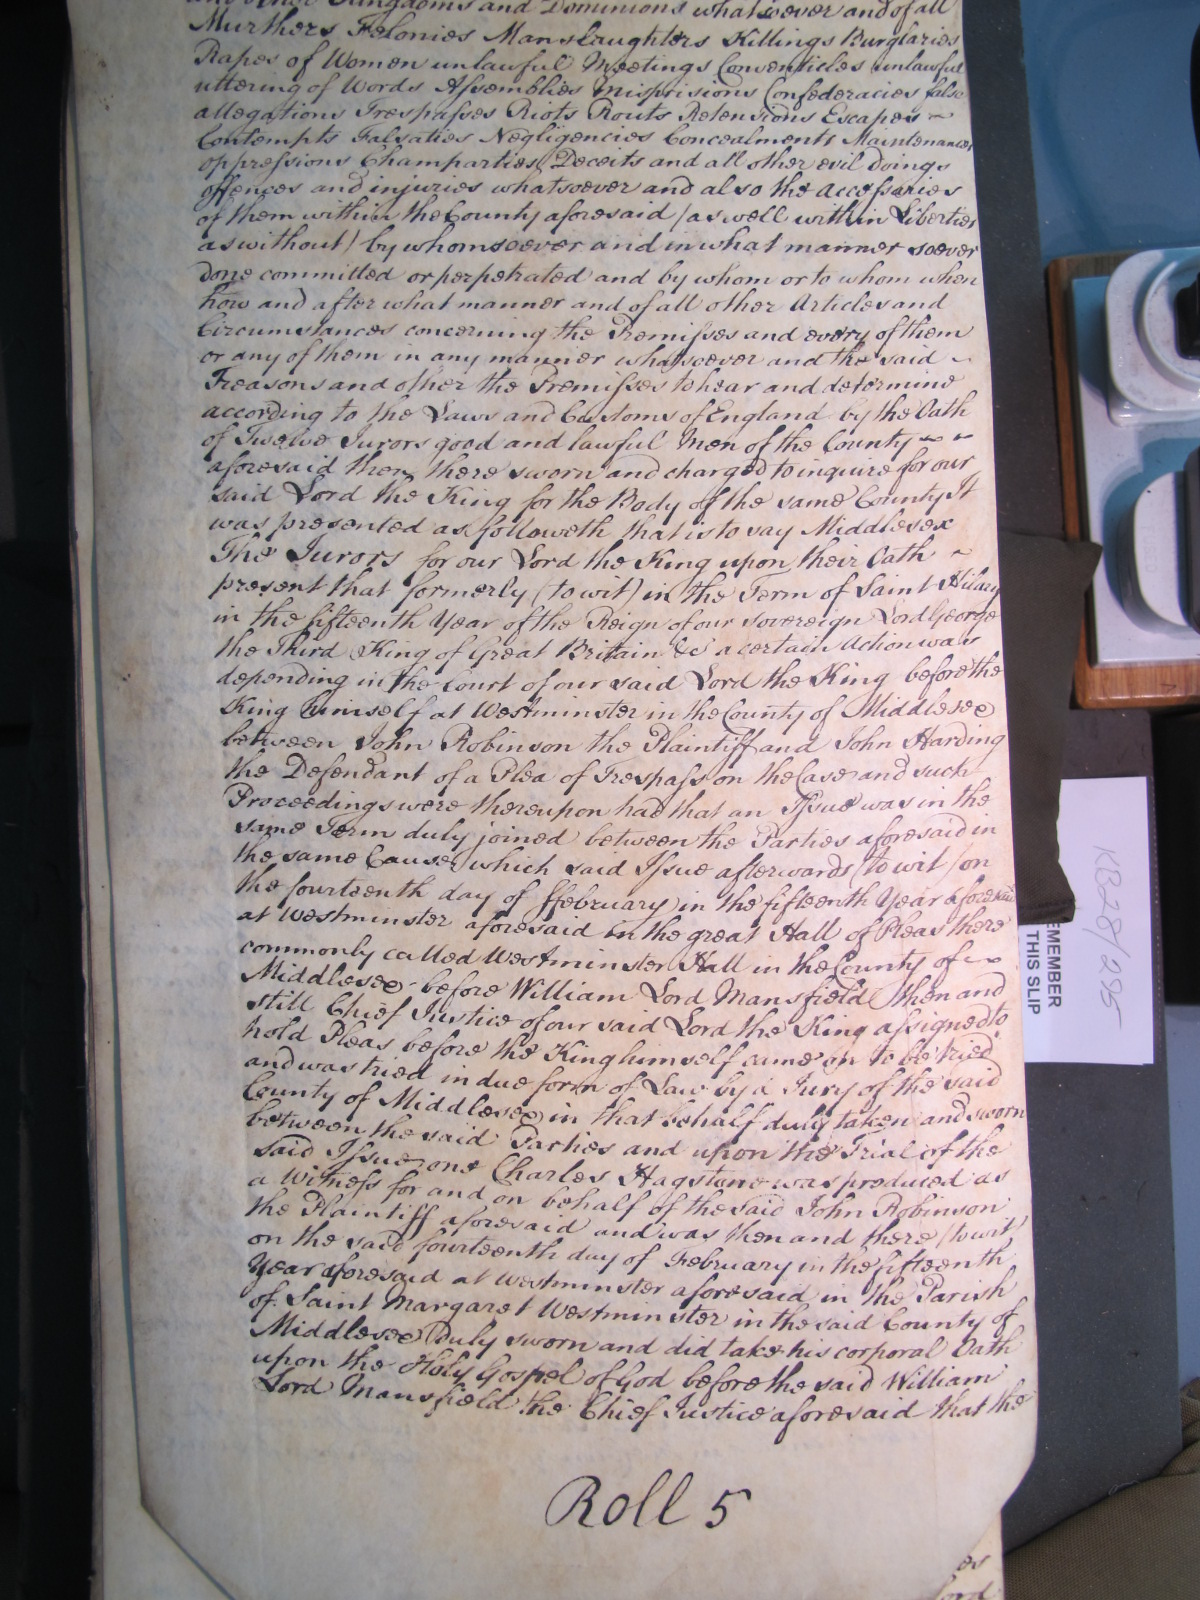 Kingdoms and Dominions whatsoever and of all
Murthers Felonies Manslaughters Killings Burglaries
Rapes of Women unlawful Meetings Conventicles unlawful
uttering of Words Assemblies Misprisions Confederacies false
allegations Trespasses Riots Routs Retensions Escapes
Contempts Falsaties Negligencies Concealments Maintenances
oppressions Champarties Deceits and all other evil doings
offences and injuries whatsoever and also the accessaries
of them within the County aforesaid (as well within Liberties
as without) by whomsoever and in what manner soever
done committed or perpetrated and by whom or to whom when
how and after what manner and of all other Articles and
Circumstances concerning the Premisses and every of them
or any of them in any manner whatsoever and the said
Treasons and other the Premisses to hear and determine
according to the Laws and Customs of England by the Oath
of Twelve Jurors good and lawful Men of the County
aforesaid then there sworn and charged to inquire for our
said Lord the King for the Body of the same County It
was presented as followeth that is to say Middlesex
The Jurors for our Lord the King upon their Oath
present that formerly (to wit) in the Term of Saint Hilary
in the fifteenth Year of the Reign of our Sovereign Lord George
the Third King of Great Britain &c a certain Action was
depending in the Court of our said Lord the King before the
King himself at Westminster in the County of Middlesex
between John Robinson the Plaintiff and John Harding
the Defendant of a Plea of Trespass on the Case and such
Proceedings were thereupon had that an Issue was in the
same Term duly joined between the Parties aforesaid in
the same Cause which said Issue afterwards (to wit) on
the fourteenth day of ffebruary in the fifteenth Year aforesaid
at Westminster aforesaid in the great Hall of Pleas there
commonly called Westminster Hall in the County of
Middlesex before William Lord Mansfield then and
still Chief Justice of our said Lord the King assigned to
hold Pleas before the King himself came on to be tried
and was tried in due form of Law by a Jury of the said
County of Middlesex in that behalf duly taken and sworn
between the said Parties and upon the Trial of the
said Issue one Charles Hagstone was produced as
a Witness for and on behalf of the said John Robinson
the Plaintiff aforesaid and was then and there (to wit)
on the said fourteenth day of February in the fifteenth
Year aforesaid at Westminster aforesaid in the Parish
of Saint Margaret Westminster in the said County of
Middlesex Duly sworn and did take his corporal Oath
upon the Holy Gospel of God before the said William
Lord Mansfield the Chief Justice aforesaid that the
Roll 5
EMEMBER
THIS SLIP
KB28/295